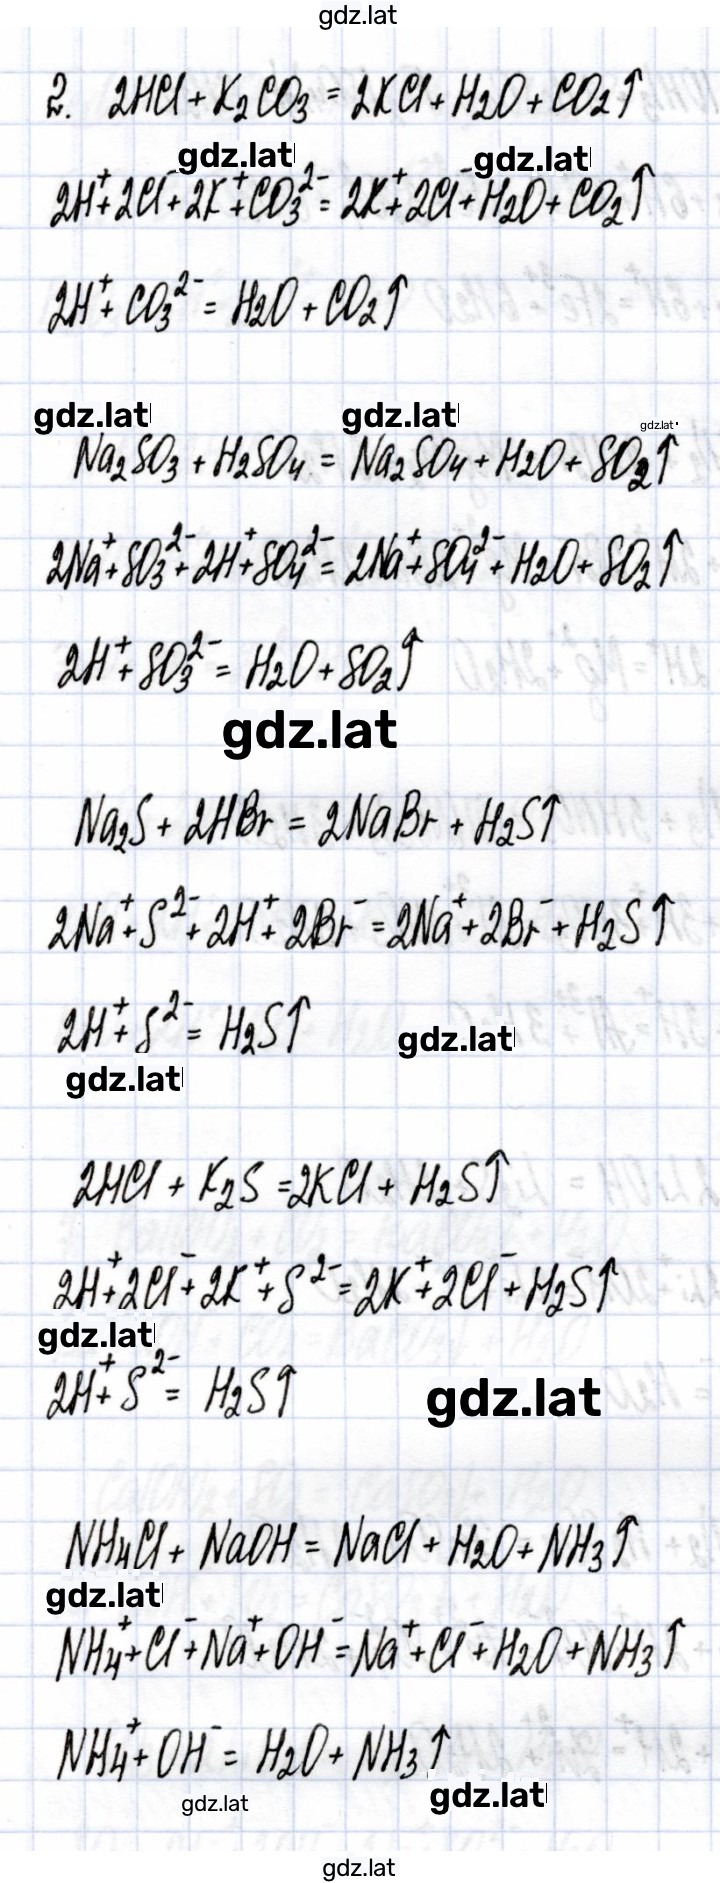 gdz.lat
2. 2HCl + K₂CO₃ = 2KCl + H₂O + CO₂↑
gdz.lat gdz.lat
2H⁺ + 2Cl⁻ + 2K⁺ + CO₃²⁻ = 2K⁺ + 2Cl⁻ + H₂O + CO₂↑
2H⁺ + CO₃²⁻ = H₂O + CO₂↑
gdz.lat gdz.lat gdz.lat
Na₂SO₃ + H₂SO₄ = Na₂SO₄ + H₂O + SO₂↑
2Na⁺ + SO₃²⁻ + 2H⁺ + SO₄²⁻ = 2Na⁺ + SO₄²⁻ + H₂O + SO₂↑
2H⁺ + SO₃²⁻ = H₂O + SO₂↑
gdz.lat
Na₂S + 2HBr = 2NaBr + H₂S↑
2Na⁺ + S²⁻ + 2H⁺ + 2Br⁻ = 2Na⁺ + 2Br⁻ + H₂S↑
2H⁺ + S²⁻ = H₂S↑
gdz.lat
gdz.lat
2HCl + K₂S = 2KCl + H₂S↑
2H⁺ + 2Cl⁻ + 2K⁺ + S²⁻ = 2K⁺ + 2Cl⁻ + H₂S↑
gdz.lat
2H⁺ + S²⁻ = H₂S↑
gdz.lat
NH₄Cl + NaOH = NaCl + H₂O + NH₃↑
gdz.lat
NH₄⁺ + Cl⁻ + Na⁺ + OH⁻ = Na⁺ + Cl⁻ + H₂O + NH₃↑
NH₄⁺ + OH⁻ = H₂O + NH₃↑
gdz.lat gdz.lat
gdz.lat